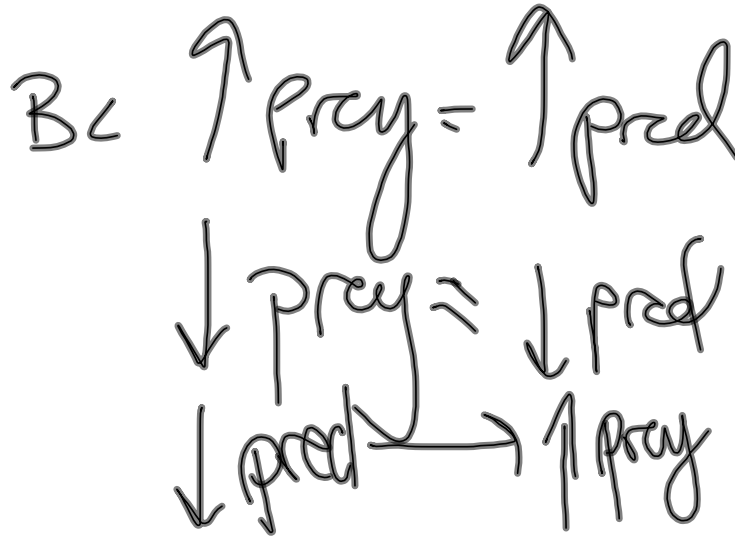 Bc ↑ prey = ↑ pred
↓ prey = ↓ pred
↓ pred → ↑ prey